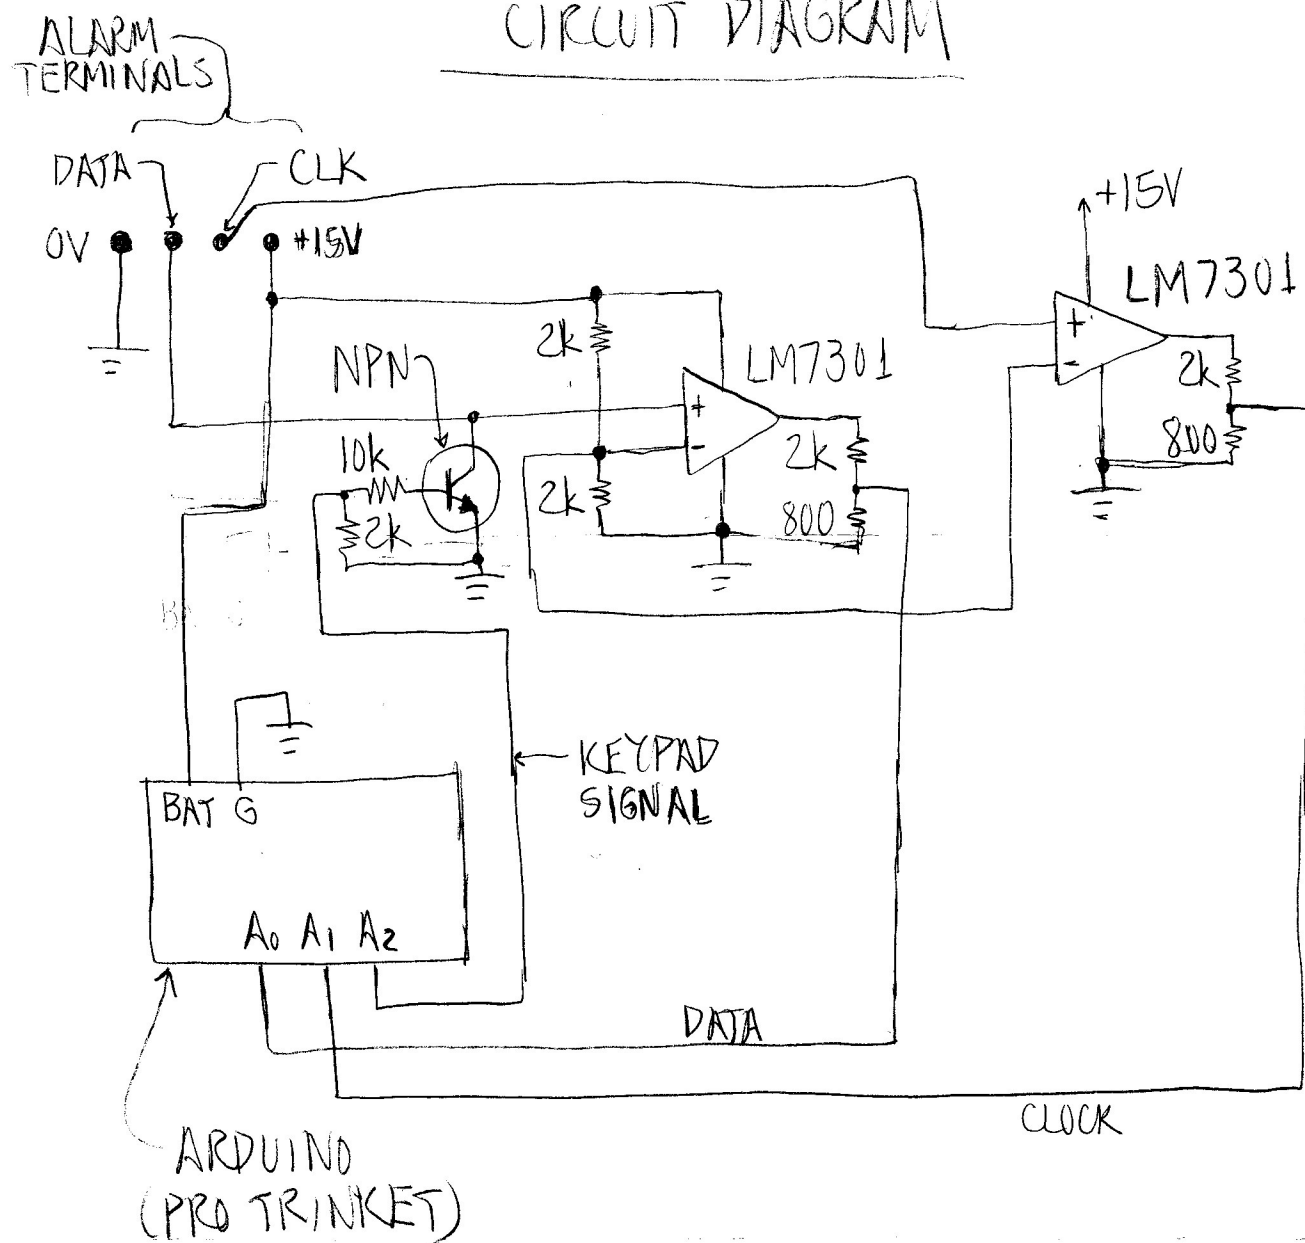 CIRCUIT DIAGRAM
ALARM
TERMINALS
DATA
CLK
0V
+15V
+15V
LM7301
+
-
2k
800
2k
NPN
LM7301
+
-
10k
2k
2k
2k
800
KEYPAD
SIGNAL
BAT G
A0 A1 A2
DATA
CLOCK
ARDUINO
(PRO TRINKET)